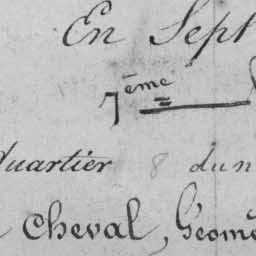 En Sept
7ème
Quartier 8 dun
Cheval, Géomè